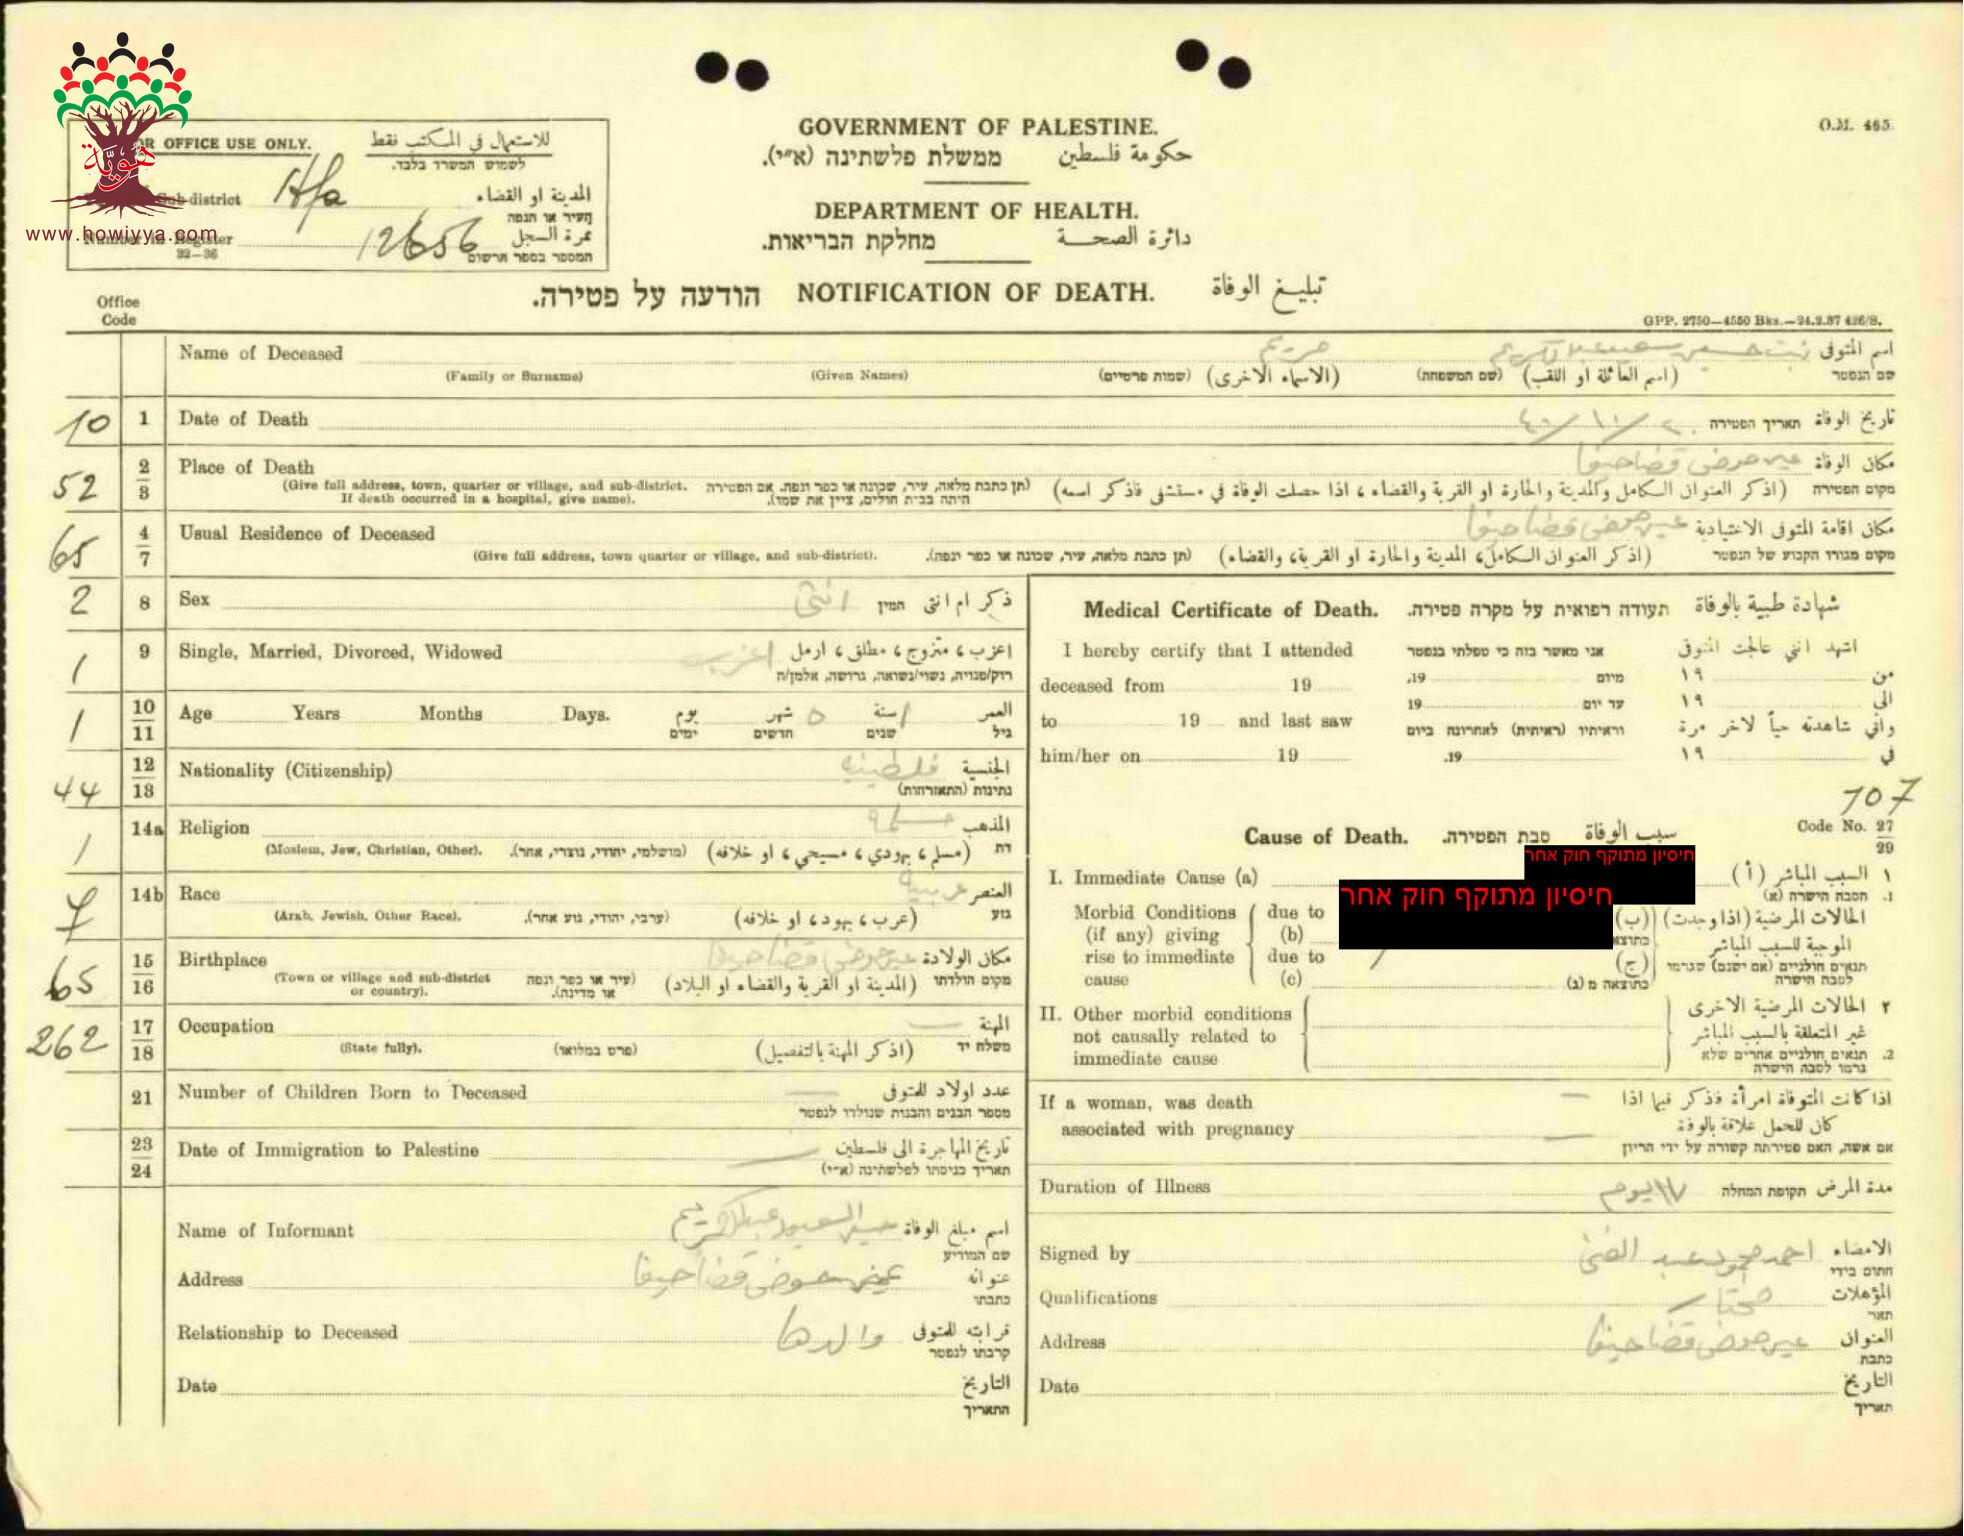 O.M. 465.
GOVERNMENT OF PALESTINE.
ממשלת פלשתינה (א״י). حكومة فلسطين
DEPARTMENT OF HEALTH.
מחלקת הבריאות. دائرة الصحة
هوية
www.howiyya.com
FOR OFFICE USE ONLY. للاستعمال في المكتب فقط
לשמוש המשרד בלבד.
Sub-district Hfa المدينة او القضاء
העיר או הנפה
Number in Register 12656 نمرة السجل
22—26 המספר בספר הרשום
הודעה על פטירה. NOTIFICATION OF DEATH. تبليغ الوفاة
Office
Code
GPP. 2750—4550 Bks.—24.2.37 426/S.
Name of Deceased مريم بنت حسين سعيد عبد الكريم اسم المتوفى
(Family or Surname) (Given Names) (שמות פרטיים) (الاسماء الاخرى) (שם המשפחה) (اسم العائلة او اللقب) שם הנפטר
10 1 Date of Death ٢٠/١٠/٤٠ תאריך הפטירה تاريخ الوفاة
52 2 3 Place of Death عين حوض قضا حيفا مكان الوفاة
(Give full address, town, quarter or village, and sub-district. (תן כתבת מלאה, עיר, שכונה או כפר ונפה. אם הפטירה
If death occurred in a hospital, give name). היתה בבית חולים, ציין את שמו).
(اذكر العنوان الكامل والمدينة والحارة او القرية والقضاء ، اذا حصلت الوفاة في مستشفى فاذكر اسمه) מקום הפטירה
65 4 7 Usual Residence of Deceased عين حوض قضا حيفا مكان اقامة المتوفى الاعتيادية
(Give full address, town quarter or village, and sub-district). (תן כתבת מלאה, עיר, שכונה או כפר ונפה). (اذكر العنوان الكامل، المدينة والحارة او القرية، والقضاء) מקום מגורו הקבוע של הנפטר
2 8 Sex انثى המין ذكر ام انثى
1 9 Single, Married, Divorced, Widowed اعزب اعزب ، متزوج ، مطلق ، ارمل
רוק/פנויה, נשוי/נשואה, גרושה, אלמן/ה
1 10 11 Age Years Months Days. يوم ٥ شهر ١ سنة العمر
ימים חדשים שנים גיל
44 12 13 Nationality (Citizenship) فلسطينيه الجنسية
נתינות (התאזרחות)
1 14a Religion مسلمه المذهب
(Moslem, Jew, Christian, Other). (מושלמי, יהודי, נוצרי, אחר). (مسلم ، يهودي ، مسيحي ، او خلافه) דת
7 14b Race عربيه العنصر
(Arab, Jewish, Other Race). (ערבי, יהודי, גזע אחר). (عرب ، يهود ، او خلافه) גזע
65 15 16 Birthplace عين حوض قضا حيفا مكان الولادة
(Town or village and sub-district or country). (עיר או כפר ונפה או מדינה). (المدينة او القرية والقضاء او البلاد) מקום הולדתו
262 17 18 Occupation — المهنة
(State fully). (פרט במלואו) (اذكر المهنة بالتفصيل) משלח יד
21 Number of Children Born to Deceased — عدد اولاد للمتوفى
מספר הבנים והבנות שנולדו לנפטר
23 24 Date of Immigration to Palestine — تاريخ المهاجرة الى فلسطين
תאריך כניסתו לפלשתינה (א״י)
Name of Informant حسين السعيد عبد الكريم اسم مبلغ الوفاة
שם המודיע
Address عين حوض قضا حيفا عنوانه
כתבתו
Relationship to Deceased والدها قرابته للمتوفى
קרבתו לנפטר
Date التاريخ
התאריך
Medical Certificate of Death. תעודה רפואית על מקרה פטירה. شهادة طبية بالوفاة
I hereby certify that I attended אני מאשר בזה כי טפלתי בנפטר اشهد انني عالجت المتوفى
deceased from 19 מיום 19, من ١٩
to 19 and last saw עד יום 19 الى ١٩
וראיתיו (ראיתיה) לאחרונה ביום واني شاهدته حياً لاخر مرة
him/her on 19 19. في ١٩
107
Cause of Death. סבת הפטירה. سبب الوفاة Code No. 27 29
חיסיון מתוקף חוק אחר
I. Immediate Cause (a) ١ السبب المباشر (أ)
1. הסבה הישרה (א)
חיסיון מתוקף חוק אחר
Morbid Conditions due to الحالات المرضية (اذا وجدت) (ب)
(if any) giving (b) الموجبة للسبب المباشر
rise to immediate due to תנאים חולניים (אם ישנם) שגרמו (ج)
cause (c) כתוצאה מ (ג) לסבה הישרה
II. Other morbid conditions ٢ الحالات المرضية الاخرى
not causally related to غير المتعلقة بالسبب المباشر
immediate cause 2. תנאים חולניים אחרים שלא
גרמו לסבה הישרה
If a woman, was death — اذا كانت المتوفاة امرأة فذكر فيما اذا
associated with pregnancy — كان للحمل علاقة بالوفاة
אם אשה, האם פטירתה קשורה על ידי הריון
Duration of Illness ١٧ يوم תקופת המחלה مدة المرض
Signed by احمد محمود عبد الغني الامضاء
חתום בידי
Qualifications مختار المؤهلات
תאר
Address عين حوض قضا حيفا العنوان
כתבת
Date التاريخ
תאריך